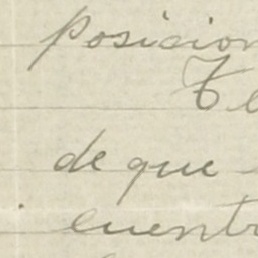 posicion
Te
de que
cuentr